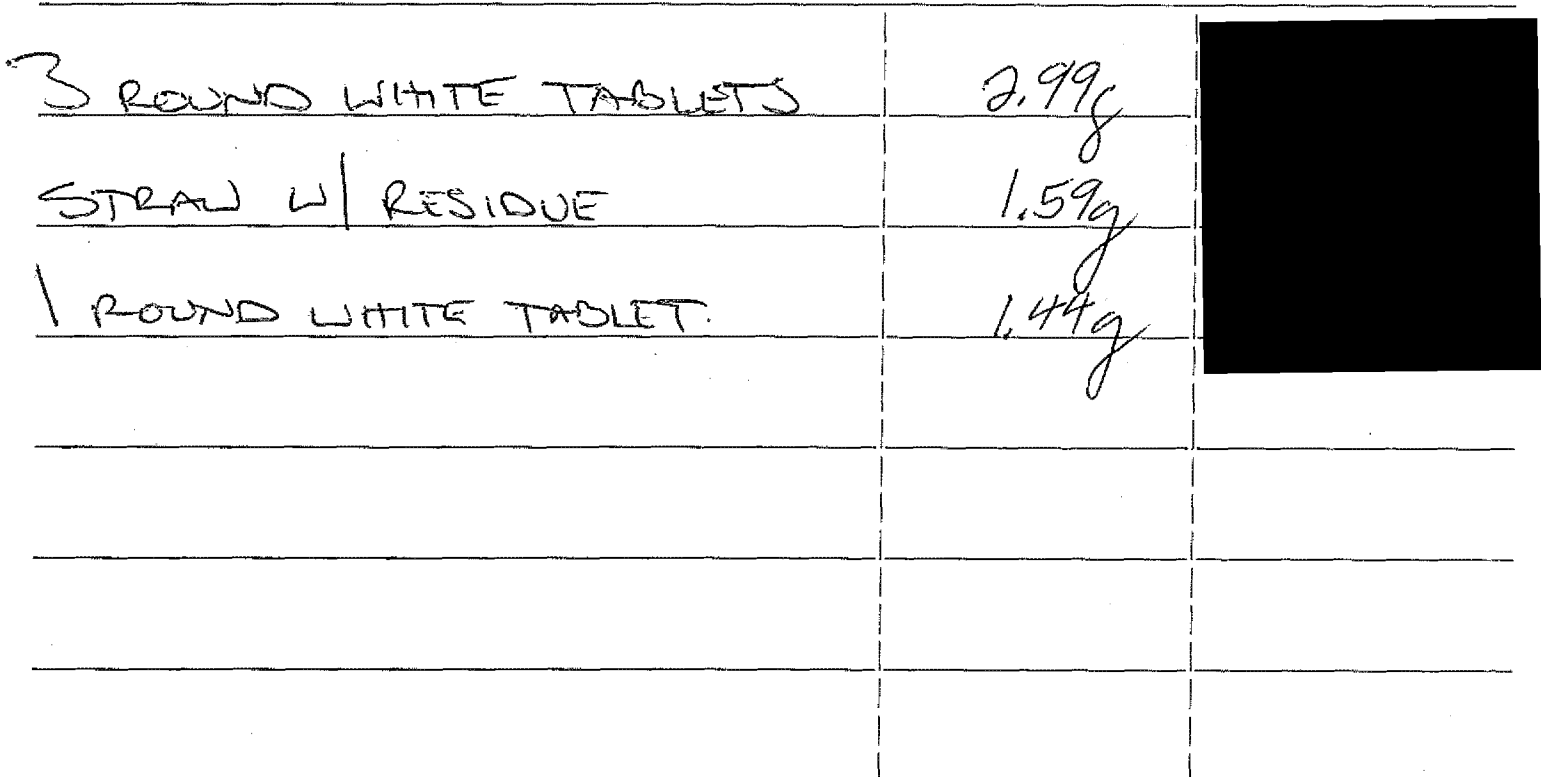 3 ROUND WHITE TABLETS 2.99g
STRAW W/ RESIDUE 1.59g
1 ROUND WHITE TABLET. 1.44g